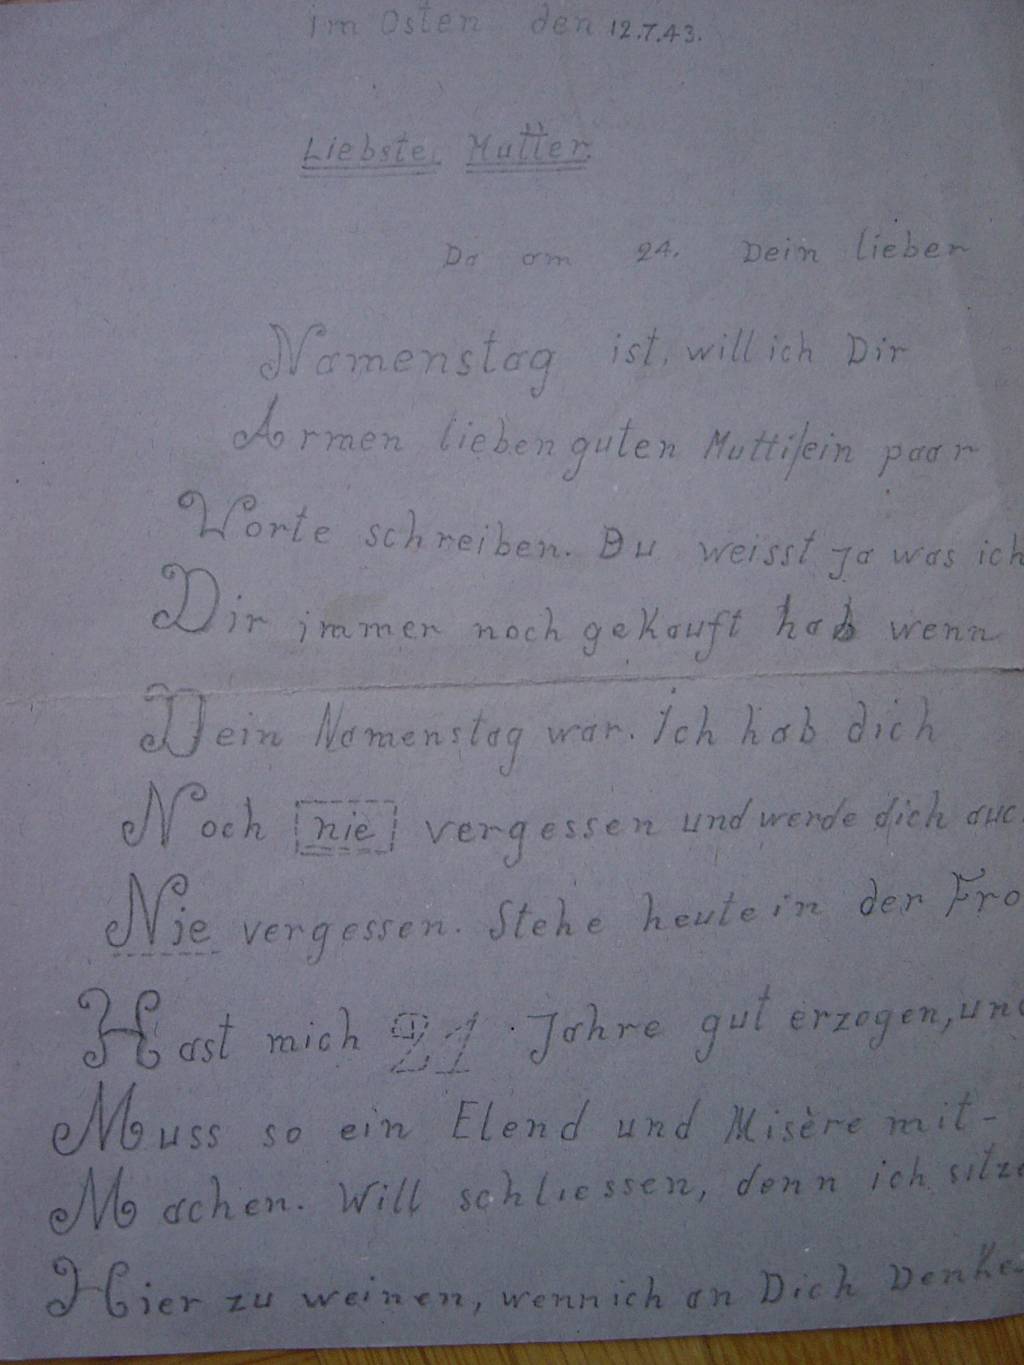 im Osten den 12.7.43.
Liebste Mutter.
Da am 24. Dein lieber
Namenstag ist, will ich Dir
Armen lieben guten Mutti/ein paar
Worte schreiben. Du weisst ja was ich
Dir immer noch gekauft hab wenn
Dein Namenstag war. Ich hab dich
Noch nie vergessen und werde dich auc
Nie vergessen. Stehe heute in der Fro
Hast mich 21 Jahre gut erzogen, und
Muss so ein Elend und Misère mit-
Machen. Will schliessen, denn ich sitze
Hier zu weinen, wenn ich an Dich Denke